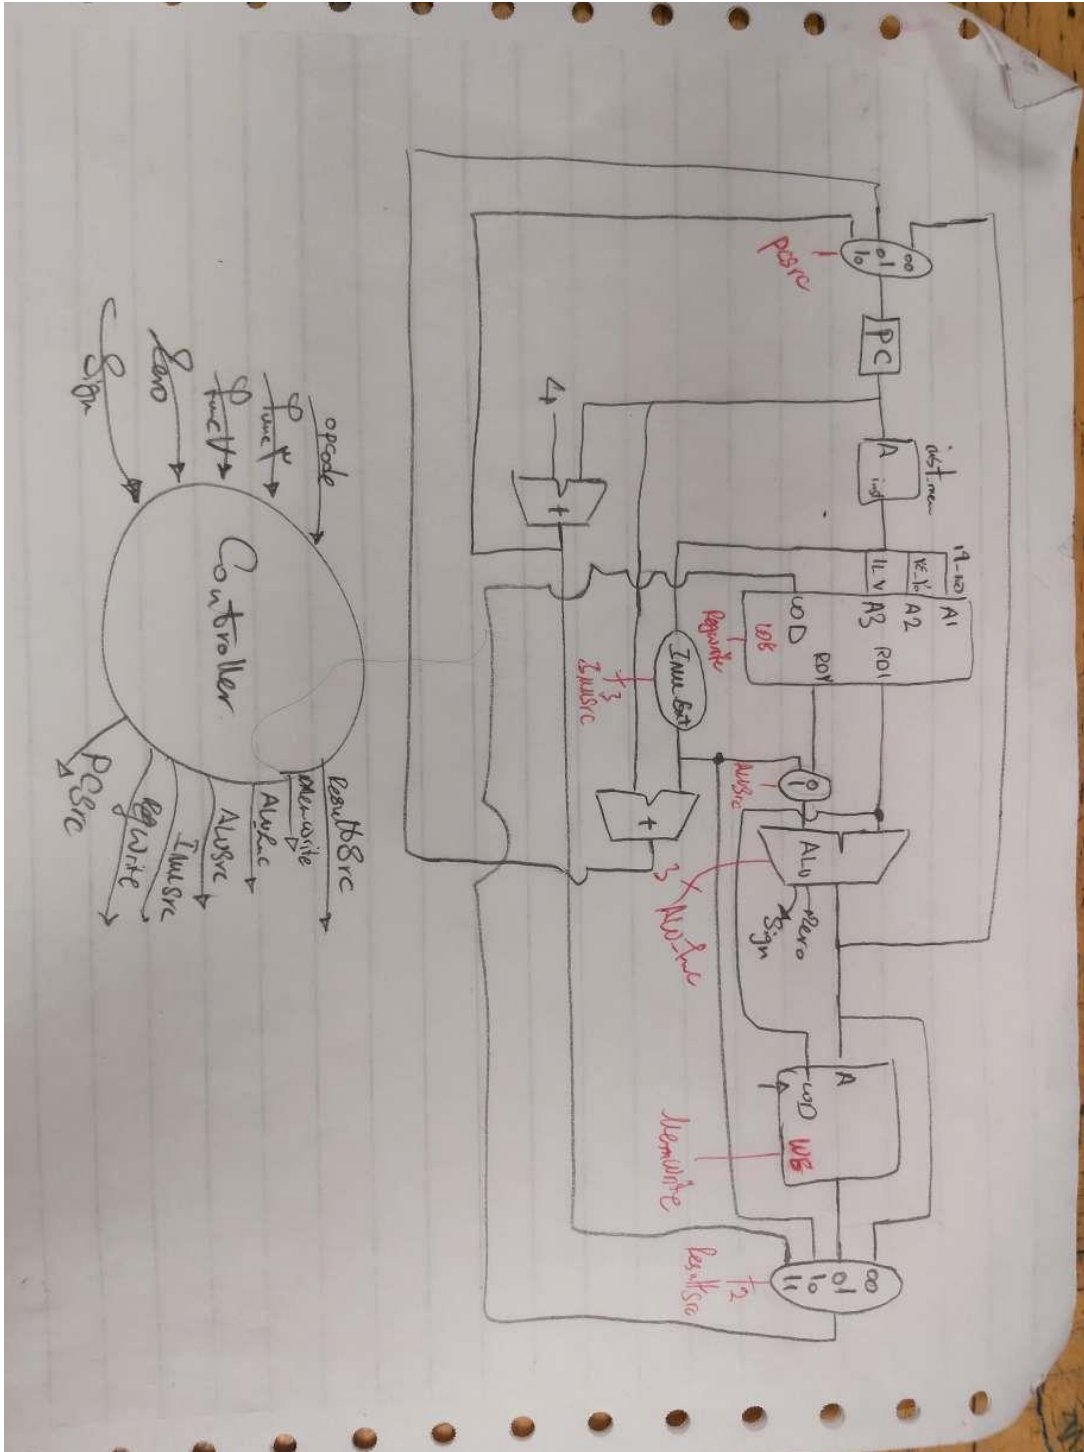 00
01
10
PCSrc
PC
inst.mem
A
inst
A1
A2
A3
RD1
WD
WB
RegWrite
Imm Ext
3
ImmSrc
4
+
+
0
1
ALUSrc
ALU
Zero
Sign
3
ALU-func
A
WD
WB
MemWrite
00
01
10
11
2
ResultSrc
opcode
func
func
Zero
Sign
Controller
ResultSrc
MemWrite
ALUSrc
ImmSrc
RegWrite
PCSrc